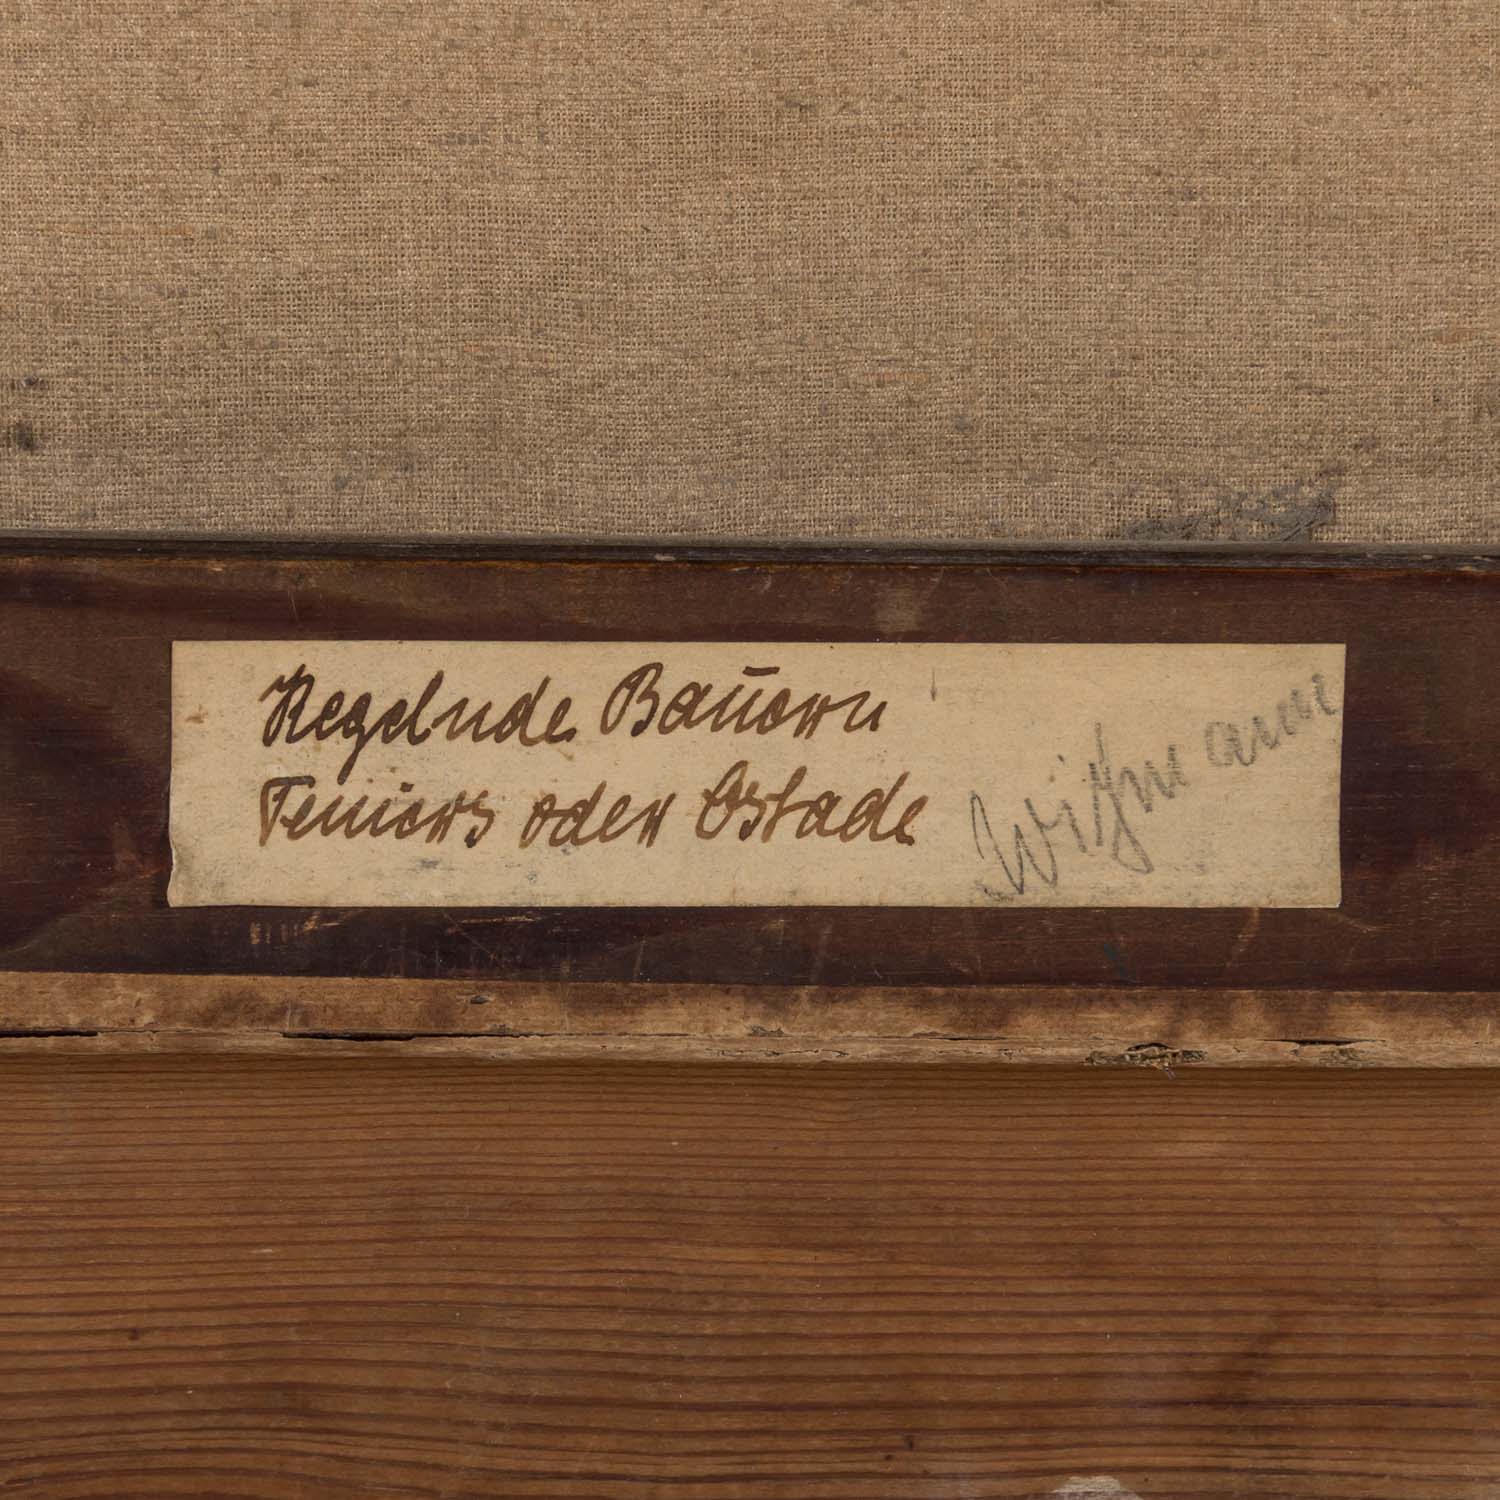 Kegelnde Bauern
Teniers oder Ostade
Witzmann